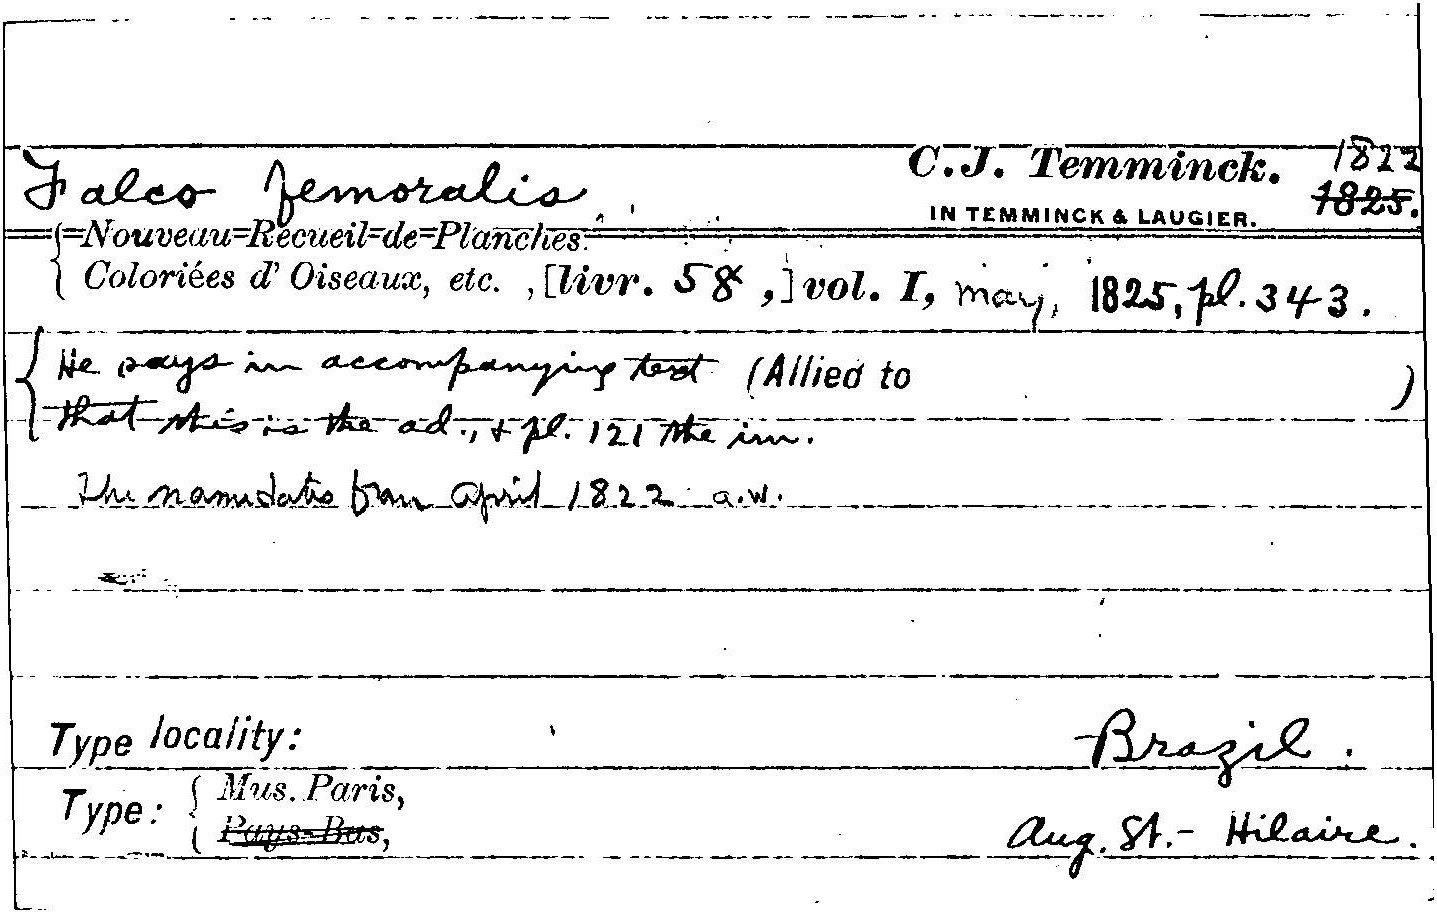 Falco femoralis C.J. Temminck. 1822
IN TEMMINCK & LAUGIER. 1825.
Nouveau Recueil de Planches
Coloriées d' Oiseaux, etc. , [livr. 58 ,] vol. I, May, 1825, pl. 343.
He says in accompanying text (Allied to )
that this is the ad., & pl. 121 the im.
The name dates from April 1822 a.w.
Type locality: Brazil.
Type: { Mus. Paris,
Pays-Bas, Aug. St.- Hilaire.